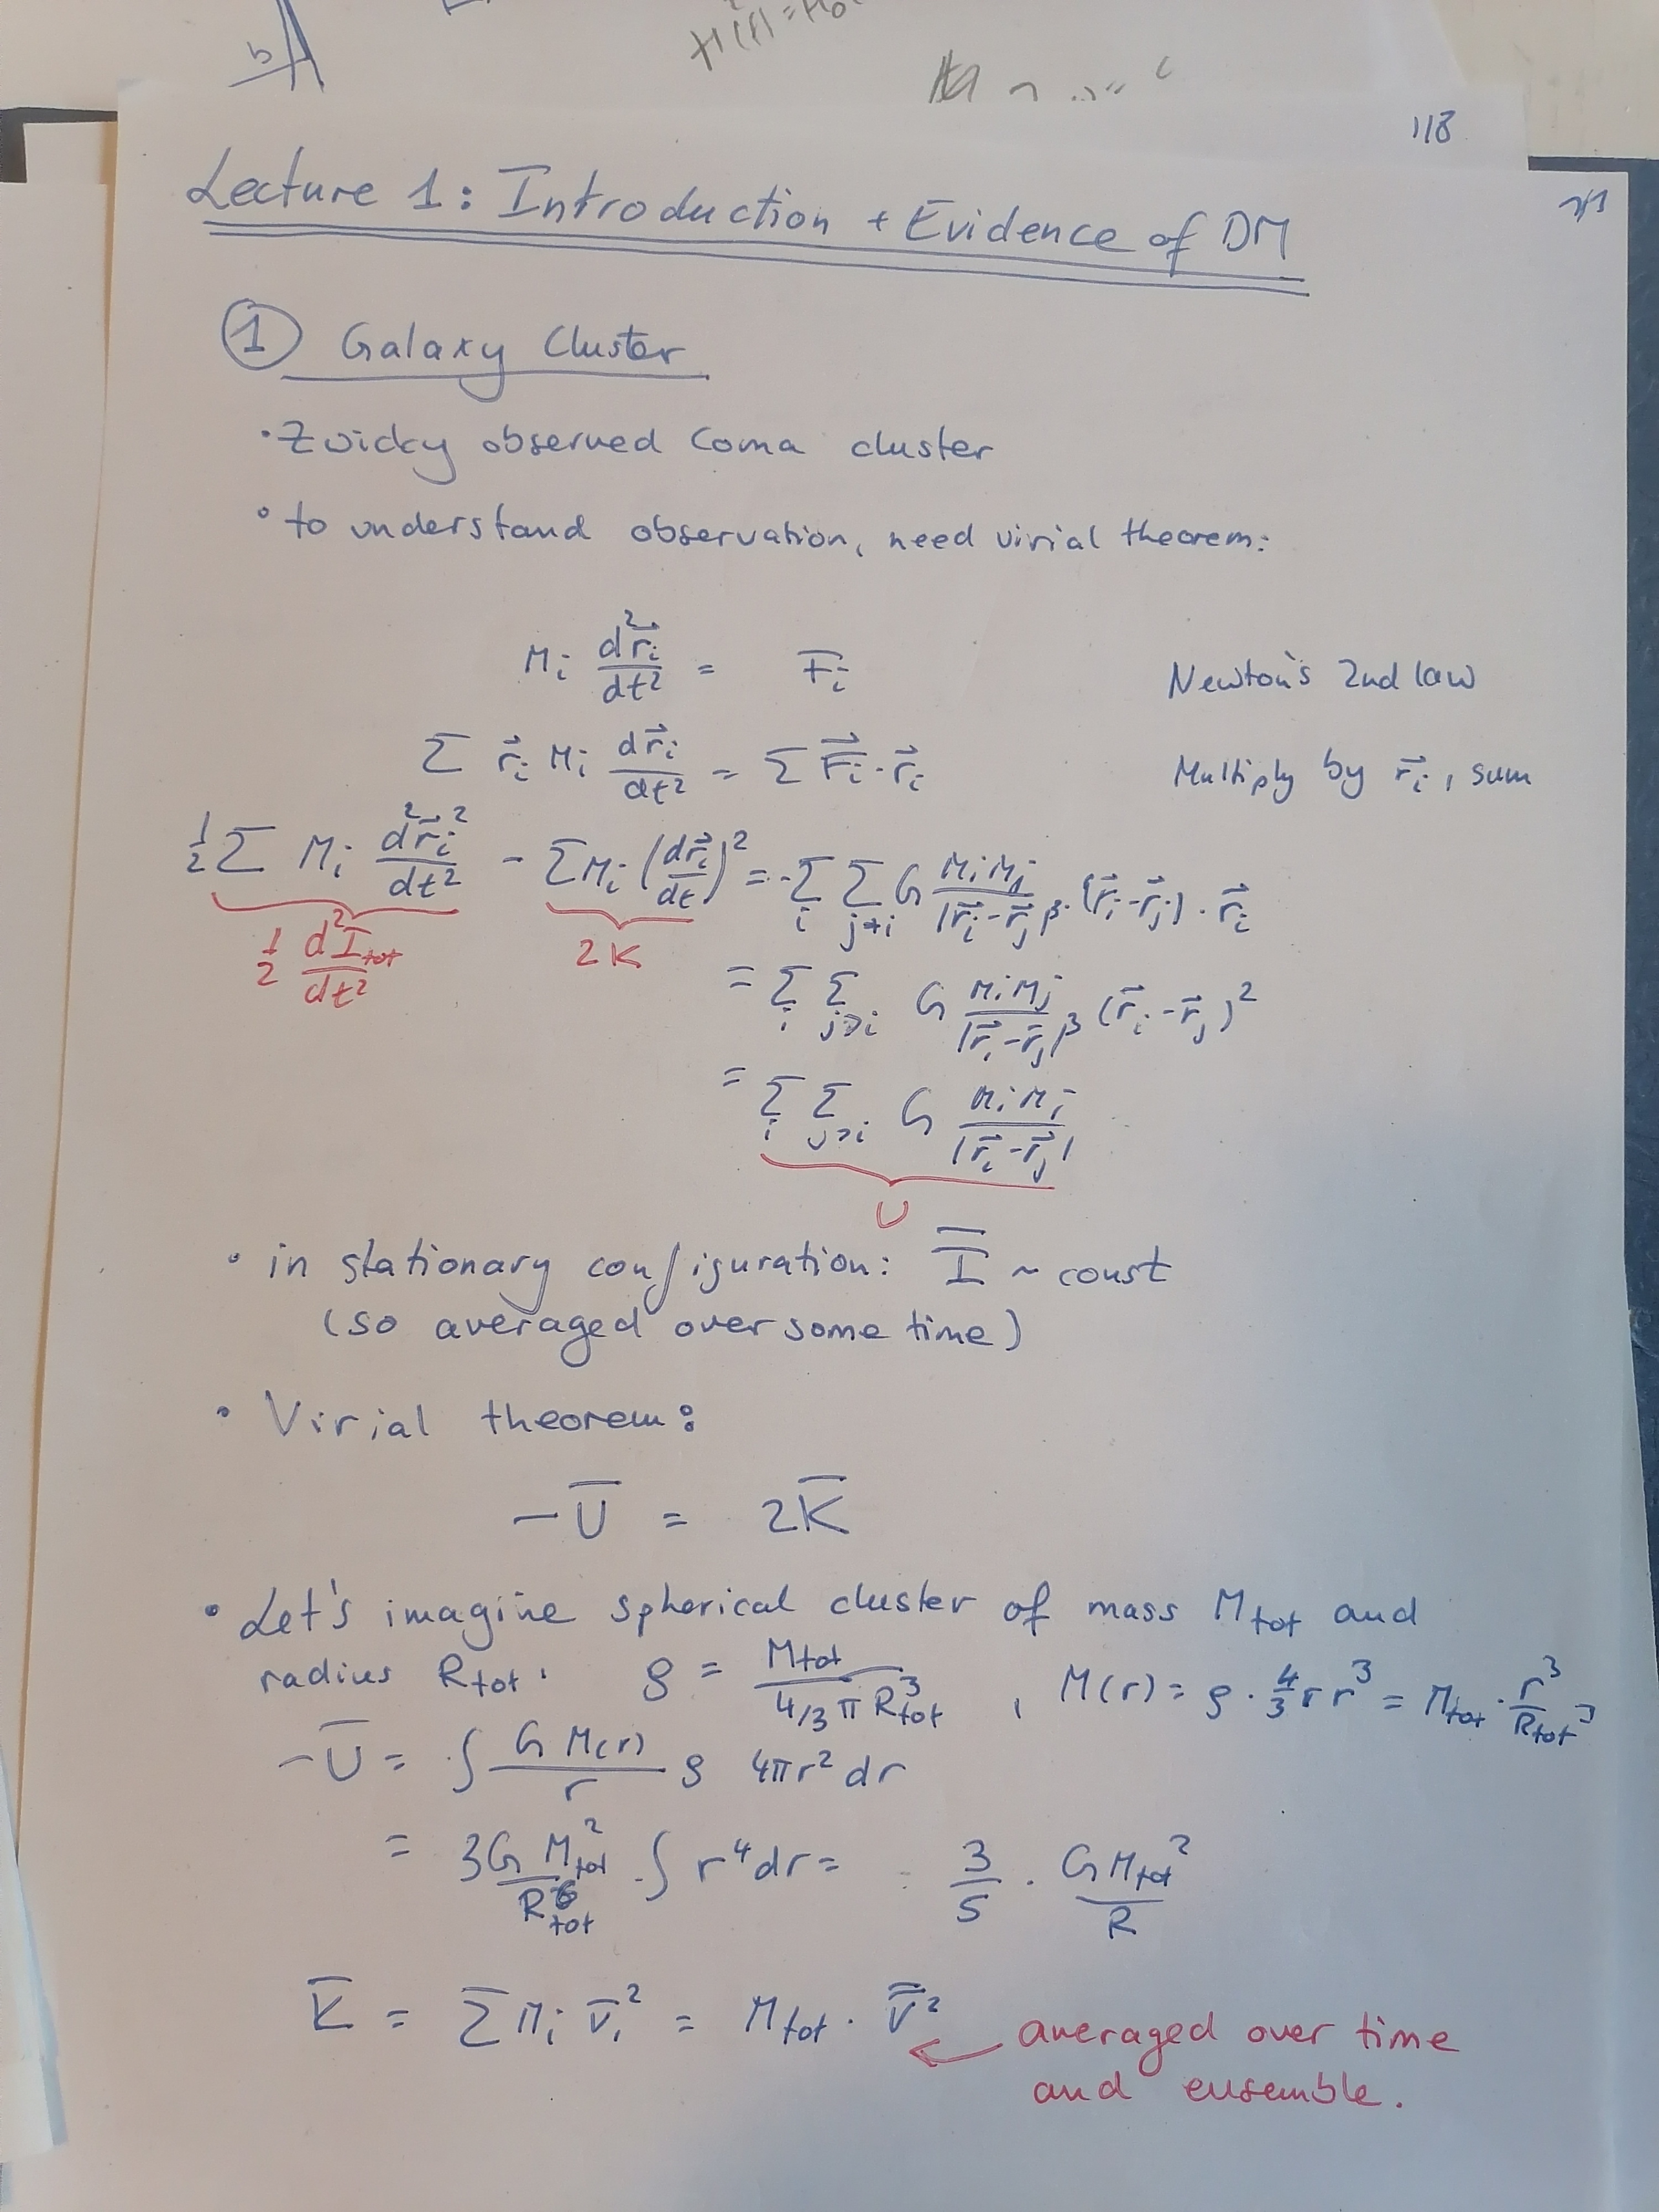 b
H(t) = H₀
118
Lecture 1: Introduction + Evidence of DM
① Galaxy Cluster
· Zwicky observed Coma cluster
° to understand observation, need virial theorem:
Mᵢ d²r⃗ᵢ/dt² = F̄ᵢ Newton's 2nd law
Σ r⃗ᵢ Mᵢ dr⃗ᵢ/dt² = Σ F⃗ᵢ · r⃗ᵢ Multiply by r⃗ᵢ, sum
½ Σ Mᵢ d²r⃗ᵢ²/dt² - Σ Mᵢ (dr⃗ᵢ/dt)² = - Σ_i Σ_{j≠i} G MᵢMⱼ/|r⃗ᵢ-r⃗ⱼ|³ · (r⃗ᵢ-r⃗ⱼ) · r⃗ᵢ
½ d²I_tot/dt² 2K
= Σ_i Σ_{j>i} G MᵢMⱼ/|r⃗ᵢ-r⃗ⱼ|³ (r⃗ᵢ-r⃗ⱼ)²
= Σ_i Σ_{j>i} G MᵢMⱼ/|r⃗ᵢ-r⃗ⱼ|
U
· in stationary configuration: Ī ~ const
(so averaged over some time)
· Virial theorem:
-Ū = 2K̄
· Let's imagine spherical cluster of mass M_tot and
radius R_tot. ρ = M_tot/(4/3 π R_tot³) , M(r) = ρ · 4/3 π r³ = M_tot · r³/R_tot³
-Ū = ∫ G M(r)/r ρ 4πr² dr
= 3G M_tot²/R_tot⁶ · ∫ r⁴ dr = 3/5 · G M_tot²/R
K̄ = Σ Mᵢ v̄ᵢ² = M_tot · v̿²
averaged over time
and ensemble.